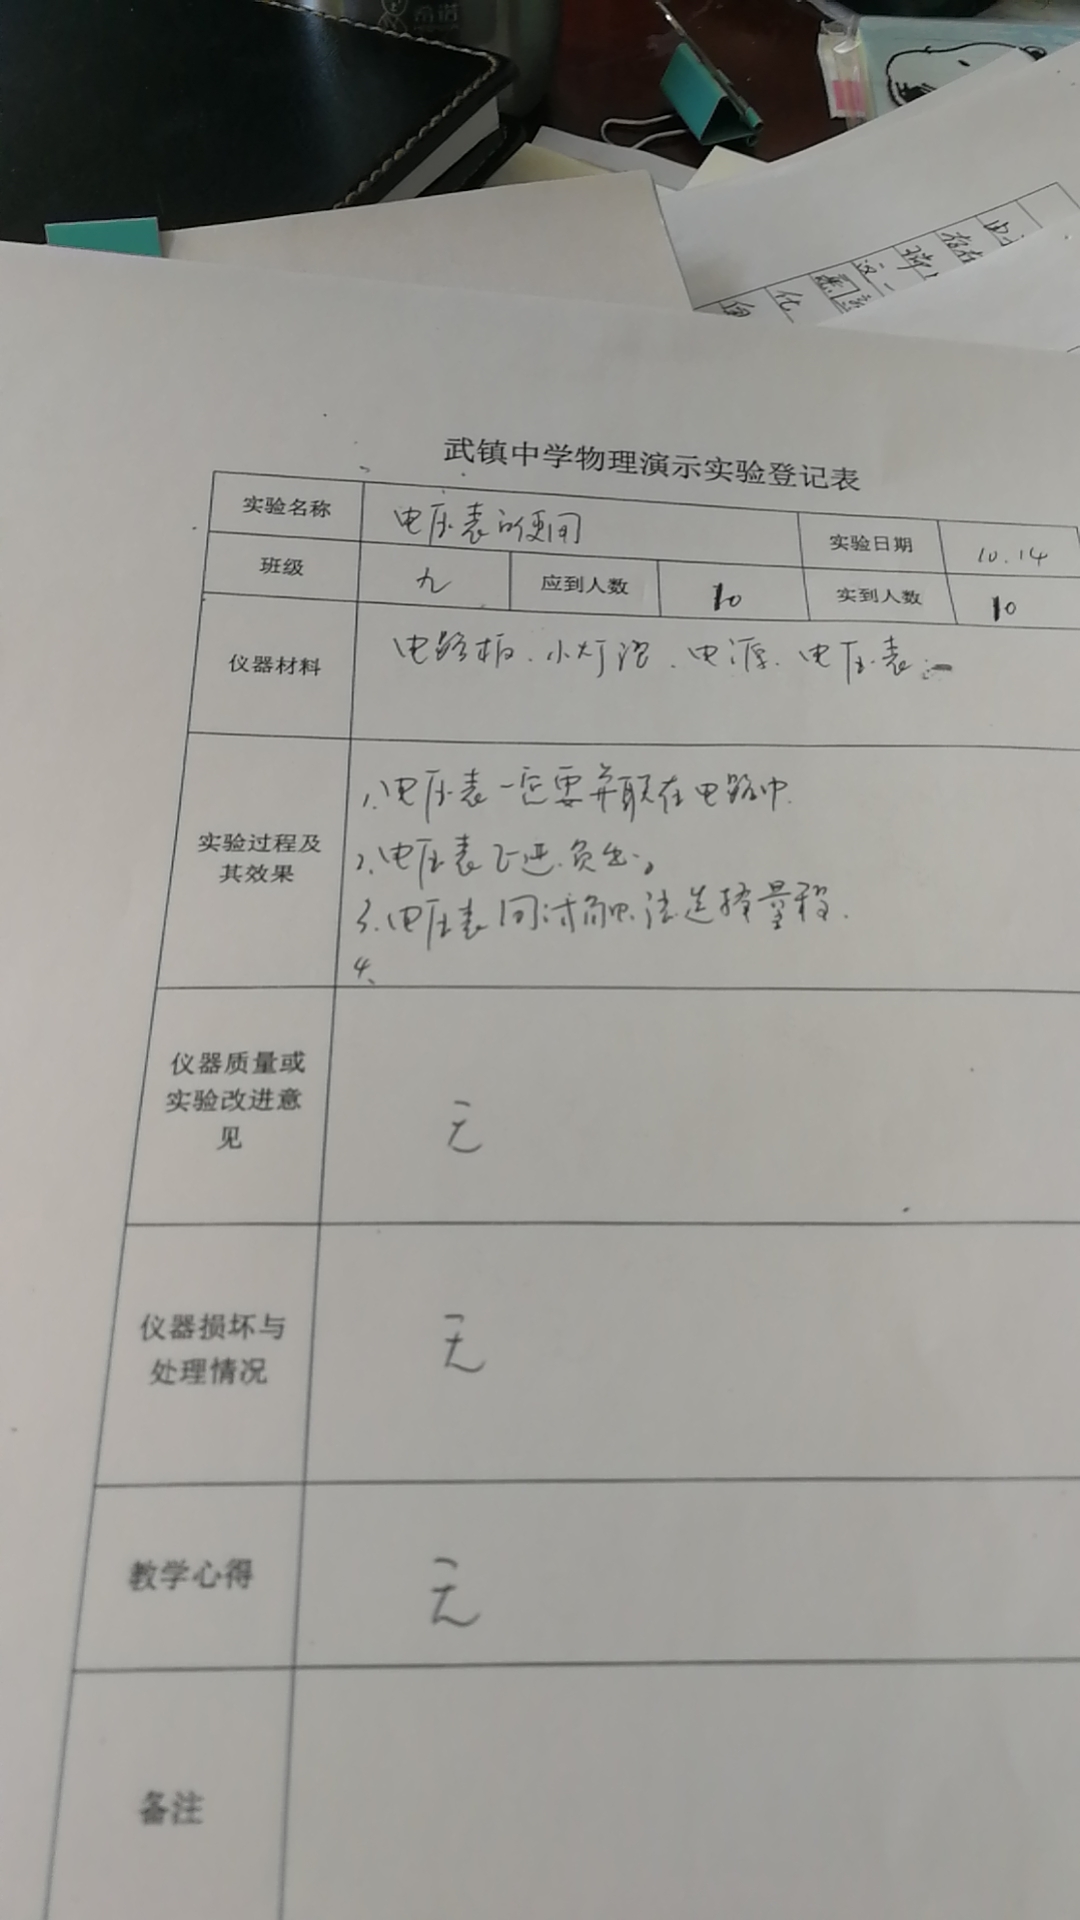 希诺
武镇中学物理演示实验登记表
实验名称 电压表的使用 实验日期 10.14
班级 九 应到人数 10 实到人数 10
仪器材料 电路板、小灯泡、电源、电压表
实验过程及其效果
1、电压表一定要并联在电路中.
2、电压表正进负出。
3、电压表同讨触法选择量程.
4、
仪器质量或
实验改进意
见
无
仪器损坏与
处理情况
无
教学心得 无
备注